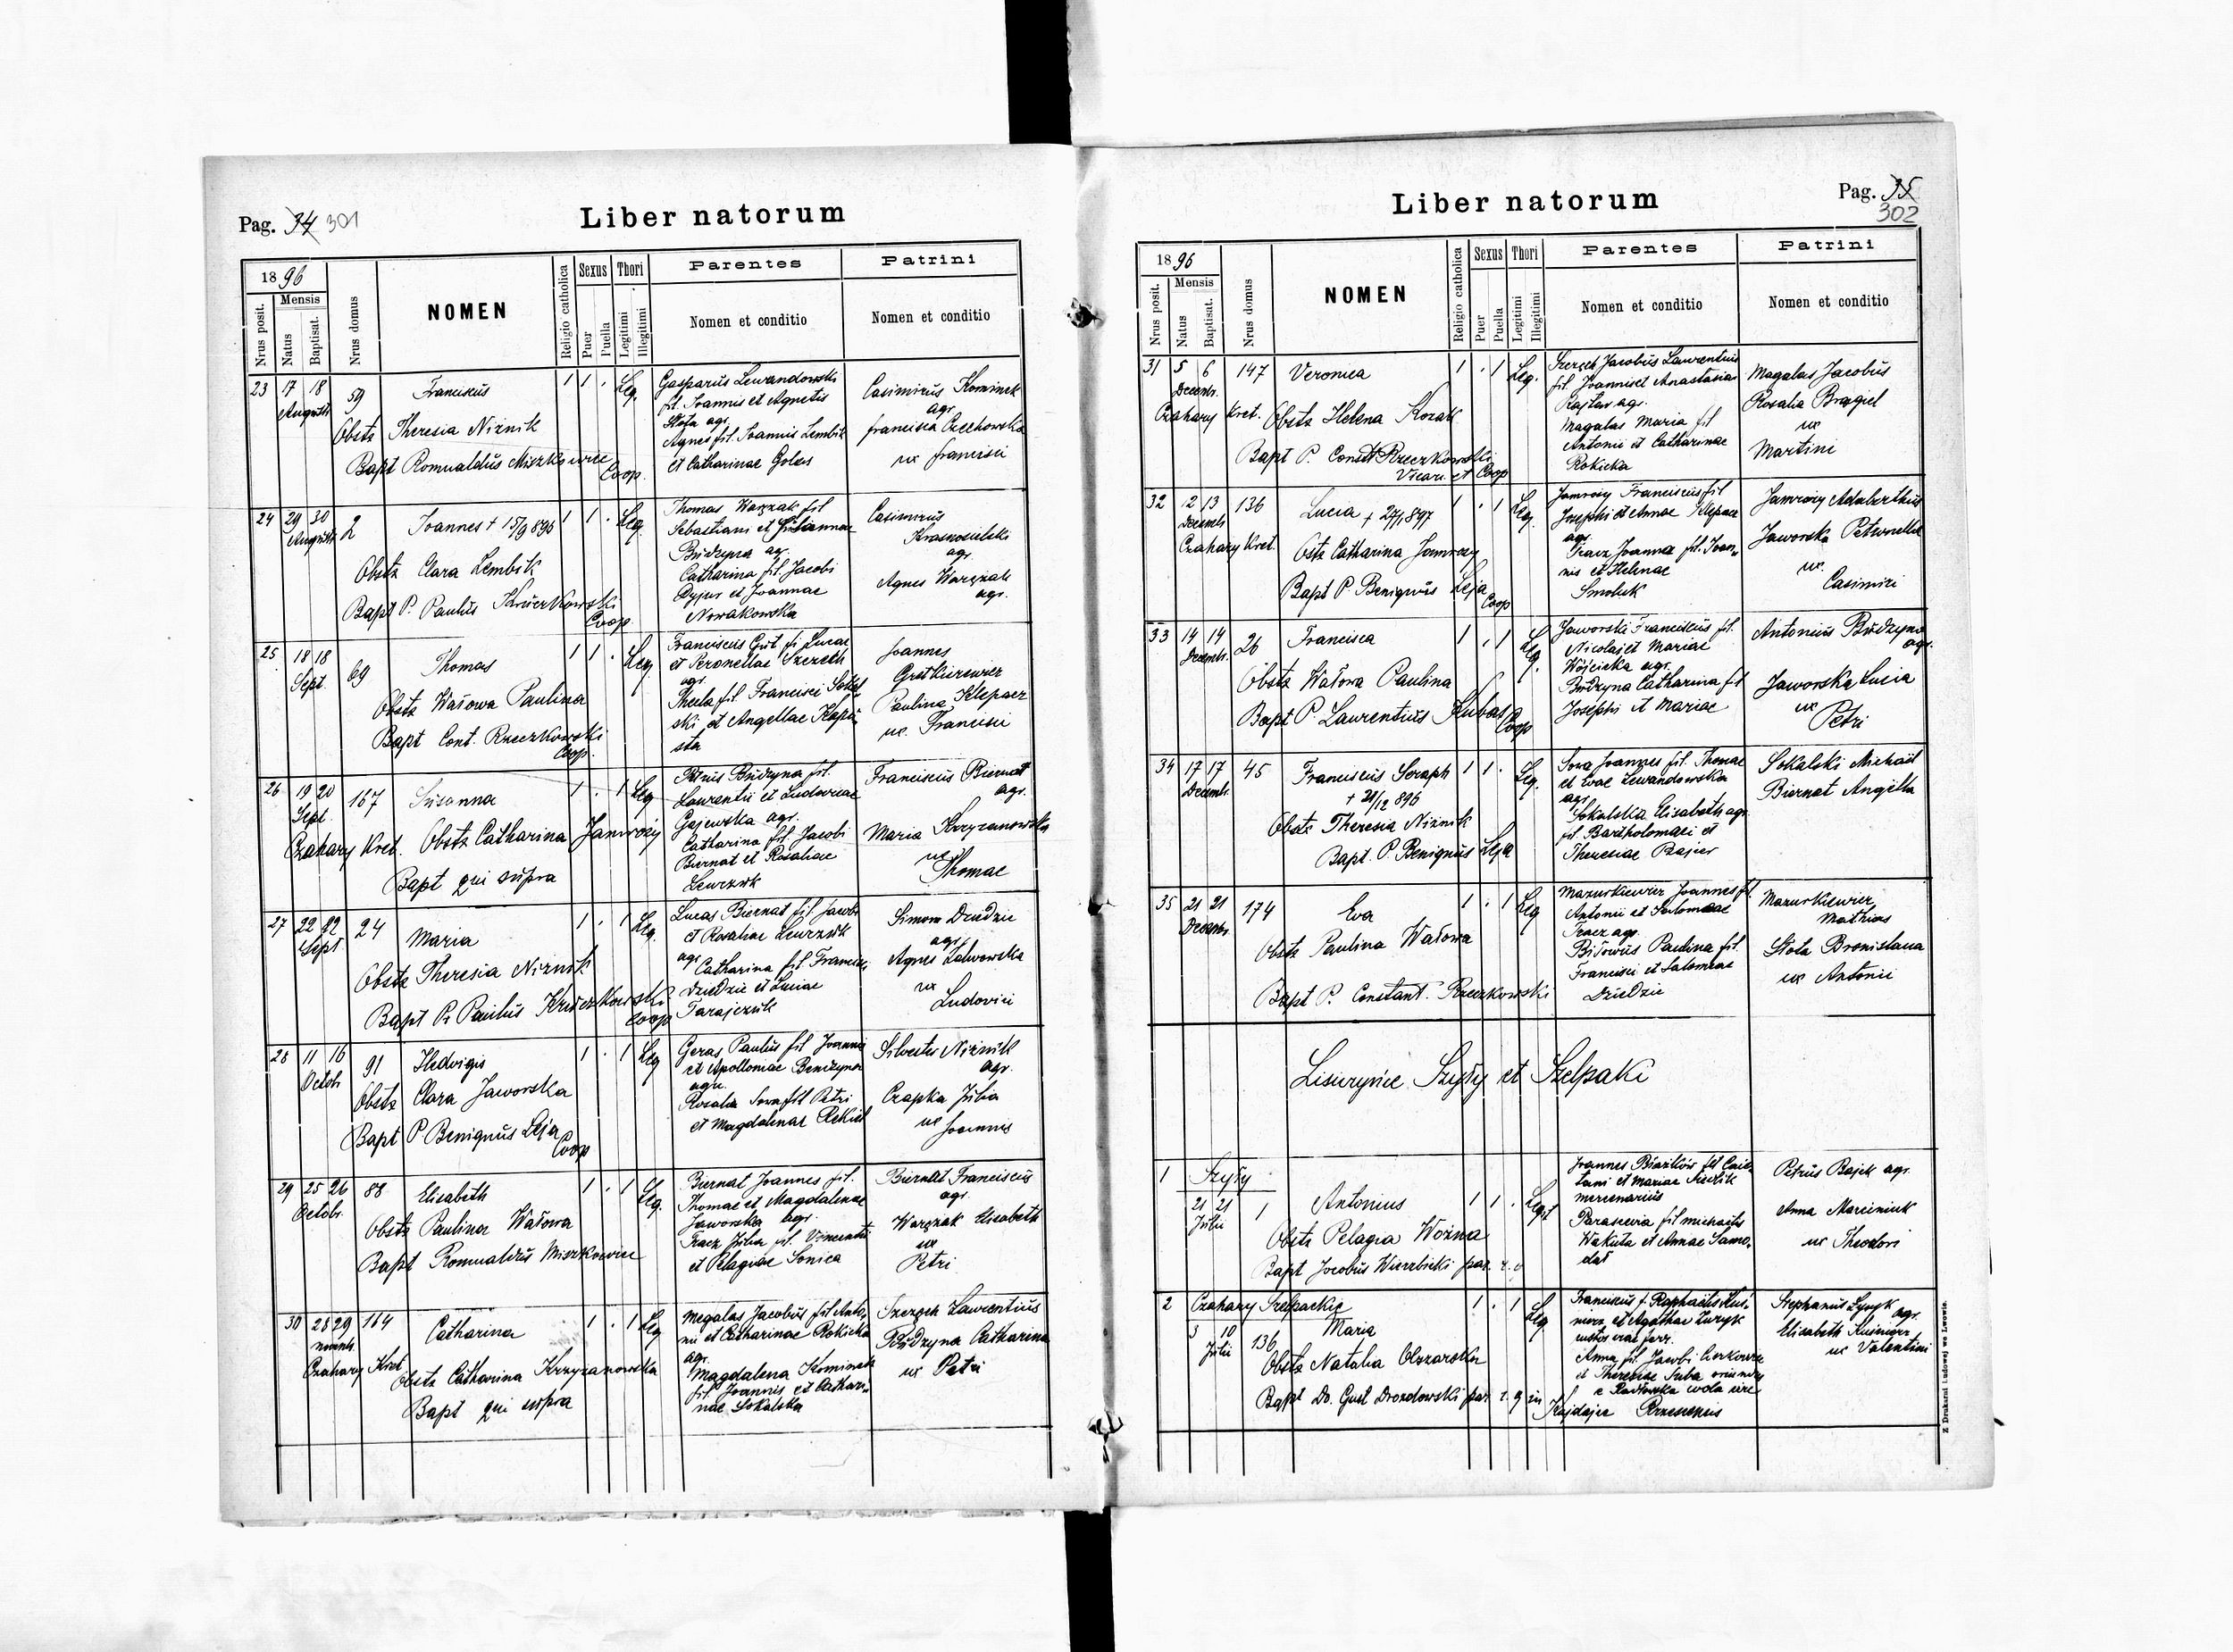 Pag. 34 301
Liber natorum
1896
Nrus posit.
Mensis
Natus
Baptisat.
Nrus domus
NOMEN
Religio catholica
Sexus
Puer
Puella
Thori
Legitimi
Illegitimi
Parentes
Nomen et conditio
Patrini
Nomen et conditio
23 17 18 59 Franciscus 1 1 . Leg.
Augusti
Obstx Theresia Niznik
Bapt Romualdus Miszkowicz
Coop.
Gasparus Lewandowski
fil. Joannis et Agnetis
Stota agr.
Agnes fil. Joannis Lembik
et Catharinae Golas
Casimirus Kominek
agr.
francisca Czechowska
ux francisci
24 29 30 2 Joannes + 15/9 896 1 1 . Leg.
Augusti
Obstx Clara Lembik
Bapt P. Paulus Kruczkowski
Coop.
Thomas Warzak fil
Sebastiani et
Budzyna agr.
Catharina fil. Jacobi
et Joannae
Nowakowska
Casimirus
Krasnosielski
agr.
Agnes Warzak
agr.
25 18 18 69 Thomas 1 1 . Leg.
Sept.
Obstx Wałowa Paulina
Bapt Const. Rzeczkowski
Coop.
Franciscus fi. Lucae
et Peronellae Szezech
agr.
Thecla fil. Francisci Sokal
ski et Angellae Kapu
sta
Joannes
Gretkierewicz
Paulina Klepacz
ux. Francisci
26 19 20 167 Susanna 1 . 1 Leg
Sept.
Czahary Kret. Obstx Catharina Jamrozy
Bapt qui supra
Petrus Budzyna fil.
Laurentii et Ludovicae
Gajewska agr.
Catharina fil. Jacobi
Biernat et Rosaliae
Lewczuk
Franciscus Biernat
agr.
Maria Krzyzanowska
ux
Thomae
27 22 22 24 Maria 1 . 1 Leg.
Sept
Obstx Theresia Niznik
Bapt P. Paulus Kruczkowski
Coop
Lucas Biernat fil. Jacobi
et Rosaliae Lewczuk
agr.
Catharina fil Francisci
Dziedzic et Luciae
Tarajczuk
Simon Dziedzic
agr.
Agnes Zalwowska
ux
Ludovici
28 11 16 91 Hedvigis 1 . 1 Leg
Octob.
Obstx Clara Jaworska
Bapt P Benignus Leja
Coop
Geras Paulus fil Joannis
et Apolloniae Benizyna
agr.
Rosalia Sowa fil Petri
et Magdalenae
Silvester Niznik
agr.
Czapka Julia
ux Joannis
29 25 26 88 Elisabeth 1 . 1 Leg.
Octobr.
Obstx Paulina Wałowa
Bapt Romualdus Miszkowicz
Biernat Joannes fil.
Thomae et Magdalenae
Jaworska agr.
Tracz Julia fil. Vincentii
et Pelagiae Sonica
Biernat Franciscus
agr.
Warzak Elisabeth
ux
Petri
30 28 29 164 Catharina 1 . 1 Leg
novemb.
Czahary Kret. Obstx Catharina Krzyzanowska
Bapt qui supra
Magalas Jacobus fil Anto,
nii et Catharinae Rokicka
agr.
Magdalena Kominek
fil Joannis et Cathari,
nae Sokalska
Szezech Laurentius
Budzyna Catharina
ux Petri
Pag. 35
302
Liber natorum
1896
Nrus posit.
Mensis
Natus
Baptisat.
Nrus domus
NOMEN
Religio catholica
Sexus
Puer
Puella
Thori
Legitimi
Illegitimi
Parentes
Nomen et conditio
Patrini
Nomen et conditio
31 5 6 147 Veronica 1 . 1 Leg.
Decembr.
Czahary Kret. Obstx Helena Kozak
Bapt P. Const Rzeczkowski
Vicar. et Coop
Szezech Jacobus Laurentius
fil Joannis et Anastasiae
agr.
Magalas Maria fil
Antonii et Catharinae
Rokicka
Magalas Jacobus
Rosalia Bragiel
ux
Martini
32 12 13 136 Lucia + 27/1 897 1 . 1 Leg.
Decemb.
Czahary Kret. Ostx Catharina Jamrozy
Bapt P Benignus Leja
Coop
Jamrozy Franciscus fil
Josephi et Annae Klepacz
agr.
Tracz Joanna fil. Joan,
nis et Helenae
Smoluk
Jamrozy Adalbertus
Jaworska Petronella
ux.
Casimiri
33 14 14 26 Francisca 1 . 1 Leg.
Decemb.
Obstx Wałowa Paulina
Bapt P. Laurentius Kubas
Coop
Jaworski Franciscus fil.
Nicolai et Mariae
Wójcicka agr.
Budzyna Catharina fil
Josephi et Mariae
Antonius Budzyna
agr.
Jaworska Lucia
ux
Petri
34 17 17 45 Franciscus Seraph 1 1 . Leg.
Decemb.
+ 21/12 896
Obstx Theresia Niznik
Bapt. P. Benignus Leja
Sowa Joannes fil. Thomae
et Evae Lewandowska
agr.
Sokalska Elisabeth agr
fil Bartholomaei et
Theresiae
Sokalski Michael
Biernat Angella
35 21 21 174 Eva 1 . 1 Leg
Decembr.
Obstx Paulina Wałowa
Bapt P. Constant. Rzeczkowski
Mazurkiewicz Joannes fil.
Antonii et Salomeae
Tracz agr.
Paulina fil.
Francisci et Salomeae
Dziedzic
Mazurkiewicz
Mathias
Stota Bronislava
ux Antonii
Lisiczynce Szyły et Szelpaki
1 Szyły
21 21 1 Antonius 1 1 . Legit
Julii
Obstx Pelagia Woźna
Bapt Jacobus Wierzbicki par. r.
Joannes fil Caie
tani et Mariae
mercenarius
Parascevia fil michaelis
Wakuta et Annae Samo,
dał
Petrus Bajek agr.
Anna Marciniuk
ux Theodori
2 Czahary Szelpackie 1 . 1 Leg.
3 10 136 Maria
Julii
Obstx Natalia Olszarska
Bapt Do. Gust Drozdowski par r. g in
Kajdajce
Franciscus f. Raphaelis Kus,
mierz et Agathae Zuryk
custos viae ferr.
Anna fil. Jacobi
et Theresiae oriunda
e Radłowska wola
Rzeszoviensis
Stephanus Zyryk
agr.
Elisabeth Kusmierz
ux Valentini
Z Drukarni Ludowej we Lwowie.